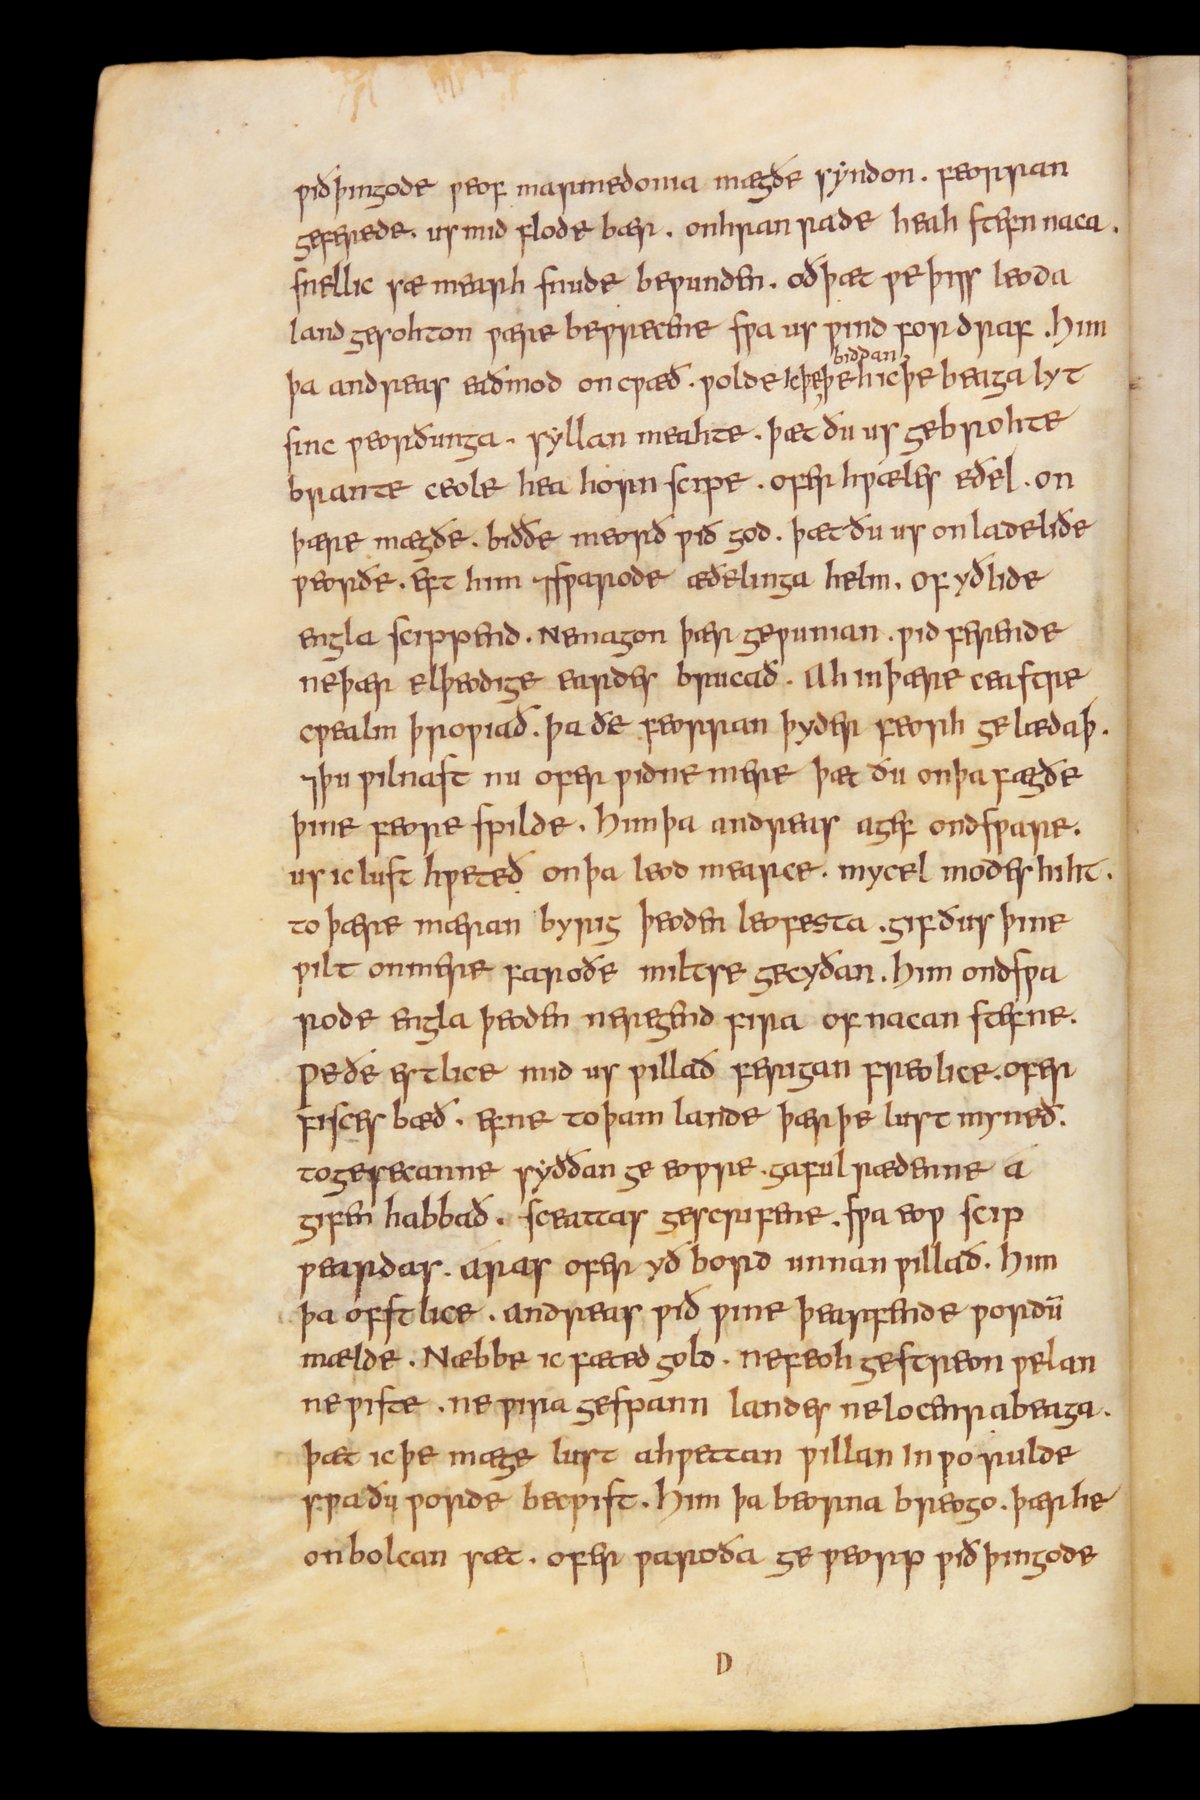 ƿiðþingode ƿeof marmedonia mægðe syndon. feorran
geferede. us mid flode bær. onhranrade heah stefn naca.
snellic sæ mearh snude beƿunden. oðþæt ƿe þiss leoda
land gesohton ƿære beƿrecene sƿa us ƿind fordraf. Him
þa andreas eaðmod oncƿæð. ƿolde icþeþe biddan hicþe beaga lyt
sinc ƿeorðunga. syllan meahte. þæt ðu us gebrohte
brante ceole hea horn scipe. ofer hƿæles eðel. on
þære mægðe. bið ðe meorð ƿið god. þæt ðu us on lade liðe
ƿeorðe. eft him ⁊sƿarode æðelinga helm. of yðlide
engla scippend. Nemagon þær geƿunian. ƿid ferende
neþær elþeodige eardes brucað. Ah inþære ceastre
cƿealm þroƿiað. þa ðe feorran þyder feorh gelædaþ.
⁊þu ƿilnast nu ofer ƿidne mere þæt ðu onþa fægðe
þine feore spilde. Him þa andreas agef ondsƿare.
usic lust hƿeteð on þa leod mearce. mycel modes hiht.
to þære mæran byrig þeoden leofesta. gif ðus þine
ƿilt onmere faroðe miltse gecyðan. Him ondsƿa
rode engla þeoden neregend fira of nacan stefne.
Ƿe ðe estlice mid us ƿillað ferigan freolice. ofer
fisces bæð. efne to þam lande þær þe lust myneð.
to gesecanne syððan ge eoƿre. gaful rædenne á
gifen habbað. sceattas gescrifene. sƿa eoƿ scip
ƿeardas. áras ofer yð bord unnan ƿillað. Him
þa ofstlice. andreas ƿið ƿine þearfende ƿordū
mælde. Næbbe ic fæted gold. ne feoh gestreon ƿelan
ne ƿiste. ne ƿira gesƿann landes ne locenra beaga.
þæt ic þe mæge lust ahƿettan ƿillan in ƿorulde
sƿa ðu ƿorde becƿist. Him þa beorna breogo. þær he
on bolcan sæt. ofer ƿaroða geƿeorp ƿiðþingode
D